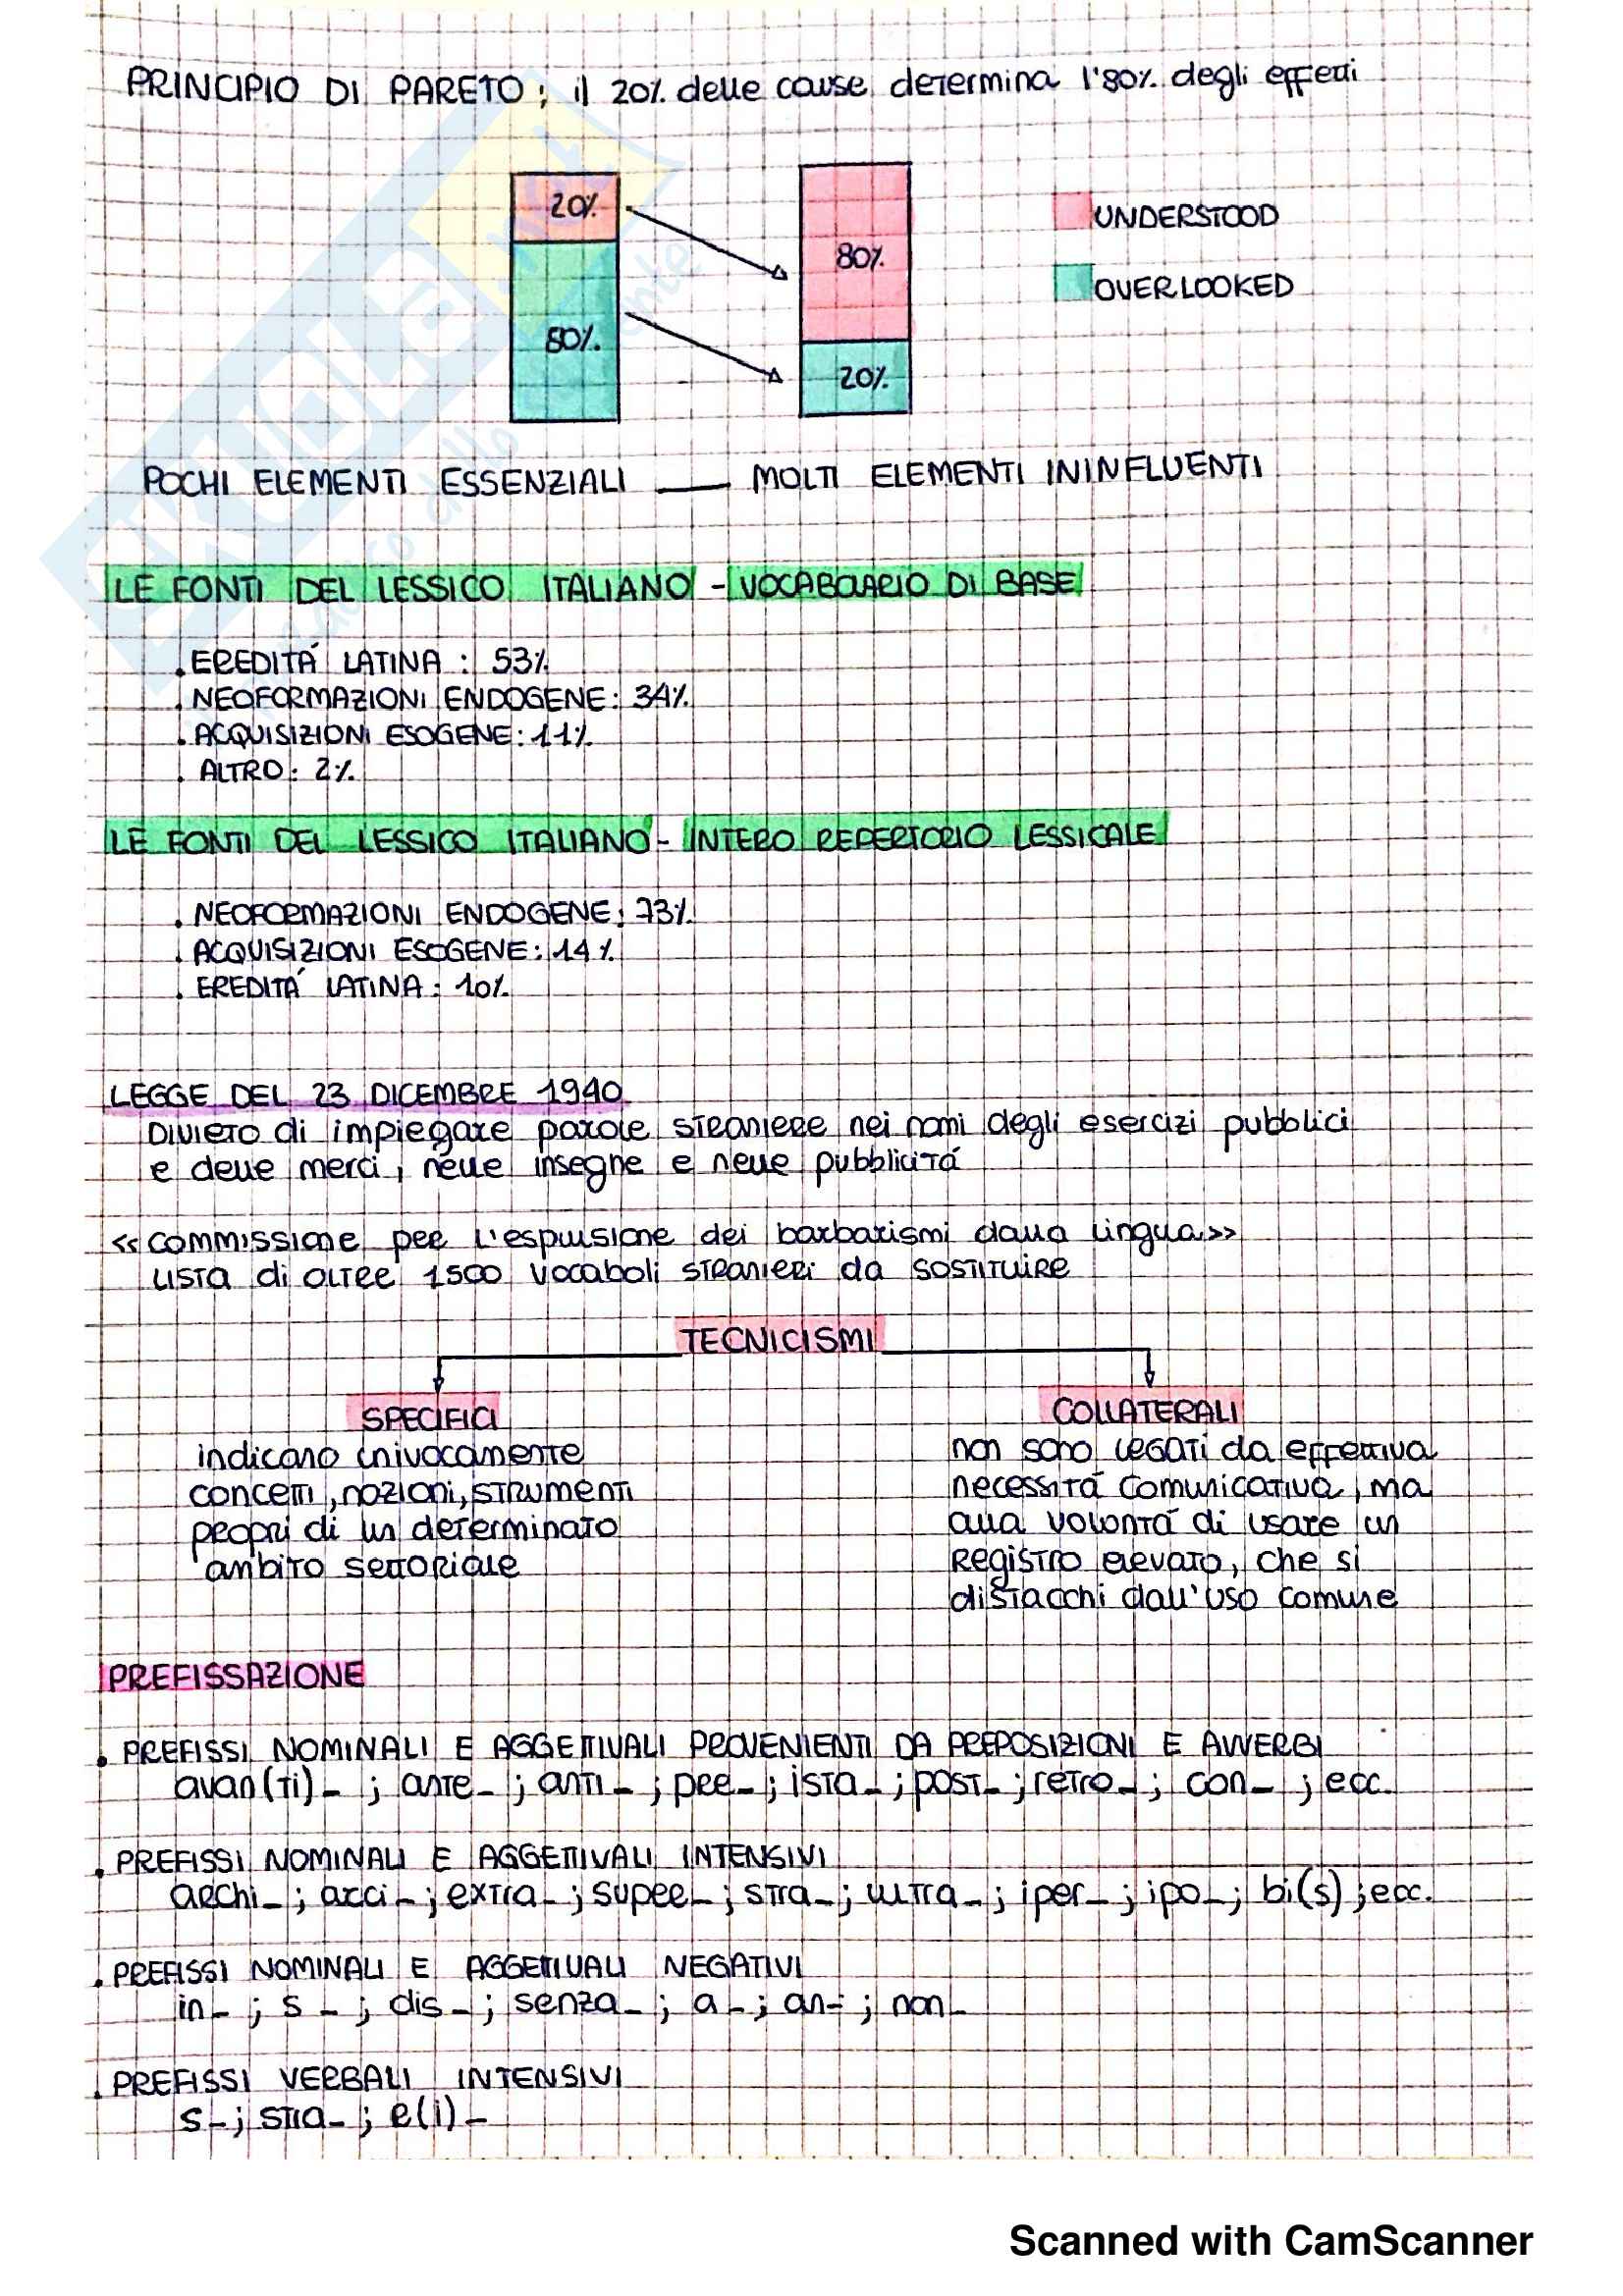 PRINCIPIO DI PARETO; il 20% delle cause determina l'80% degli effetti
20%
80%
80%
20%
UNDERSTOOD
OVERLOOKED
POCHI ELEMENTI ESSENZIALI — MOLTI ELEMENTI ININFLUENTI
LE FONTI DEL LESSICO ITALIANO - VOCABOLARIO DI BASE
. EREDITÁ LATINA : 53%
. NEOFORMAZIONI ENDOGENE: 34%
. ACQUISIZIONI ESOGENE: 11%
. ALTRO: 2%
LE FONTI DEL LESSICO ITALIANO - INTERO REPERTORIO LESSICALE
. NEOFORMAZIONI ENDOGENE: 73%
. ACQUISIZIONI ESOGENE: 14%
. EREDITÁ LATINA: 10%
LEGGE DEL 23 DICEMBRE 1940
DIVIETO di impiegare parole straniere nei nomi degli esercizi pubblici
e delle merci, nelle insegne e nelle pubblicitá
<<COMMISSIONE per l'espulsione dei barbarismi dalla lingua>>
LISTA di OLTRE 1500 vocaboli stranieri da SOSTITUIRE
TECNICISMI
SPECIFICI
indicano univocamente
concetti, nozioni, strumenti
propri di un determinato
ambito settoriale
COLLATERALI
non sono legati da effettiva
necessitá comunicativa, ma
alla volontá di usare un
registro elevato, che si
distacchi dall'uso comune
PREFISSAZIONE
. PREFISSI NOMINALI E AGGETTIVALI PROVENIENTI DA PREPOSIZIONI E AVVERBI
avan(ti)_ ; ante_ ; anti_ ; pre_ ; ista_ ; post_ ; retro_ ; con_ ; ecc.
. PREFISSI NOMINALI E AGGETTIVALI INTENSIVI
archi_ ; arci_ ; extra_ ; super_ ; stra_ ; ultra_ ; iper_ ; ipo_ ; bi(s) ; ecc.
. PREFISSI NOMINALI E AGGETTIVALI NEGATIVI
in_ ; s_ ; dis_ ; senza_ ; a_ ; an_ ; non_
. PREFISSI VERBALI INTENSIVI
s_ ; stra_ ; e(i)_
Scanned with CamScanner